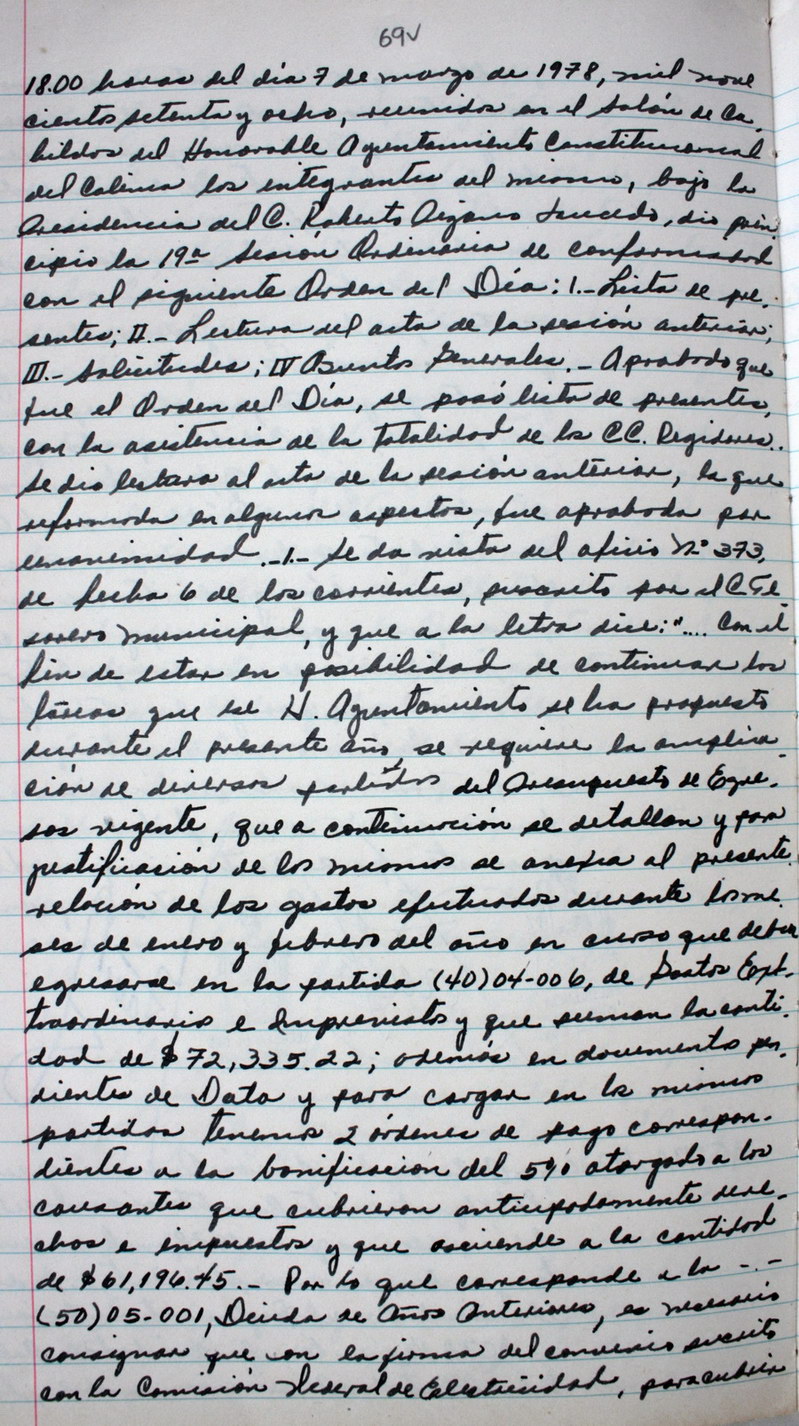 69v
18.00 horas del día 7 de marzo de 1978, mil nove
cientos setenta y ocho, reunidos en el Salón de Ca-
bildos del Honorable Ayuntamiento Constitucional
del Colima los integrantes del mismo, bajo la
Presidencia del C. Roberto Pizano Saucedo, dio prin
cipio la 19a Sesión Ordinaria de conformidad
con el siguiente Orden del Día: I.- Lista de pre-
sentes; II.- Lectura del acta de la sesión anterior;
III.- Solicitudes; IV Asuntos Generales.- Aprobado que
fue el Orden del Día, se pasó lista de presentes,
con la asistencia de la totalidad de los CC. Regidores..
Se dio lectura al acta de la sesión anterior, la que
reformada en algunos aspectos, fue aprobada por
unanimidad.-.1.- Se da vista del oficio N° 373,
de fecha 6 de los corrientes, suscrito por el C. Te
sorero Municipal, y que a la letra dice: ".... Con el
fin de estar en posibilidad de continuar los
táreas que ese H. Ayuntamiento se ha propuesto
durante el presente año, se requiere la amplia-
ción de diversas partidas del Presupuesto de Egre-
sos vigente, que a continuación se detallan y para
justificación de los mismos se anexa al presente
relación de los gastos efectuados durante los me
ses de enero y febrero del año en curso que deben
egresarse en la partida (40)04-006, de Gastos Ext-
traordinarios e Imprevistos y que suman la canti-
dad de $72,335.22; además en documentos pen-
dientes de Data y para cargar en los mismos
partidas tenemos 2 órdenes de pago correspon-
dientes a la bonificación del 5% otorgado a los
causantes que cubrieron anticipadamente dere-
chos e impuestos y que asciende a la cantidad
de $61,196.45.- Por lo que corresponde a la -.-
(50)05-001, Deuda de Años Anteriores, es necesario
consignar que con la firma del convenio suscrito
con la Comisión Federal de Electricidad, para cubrir